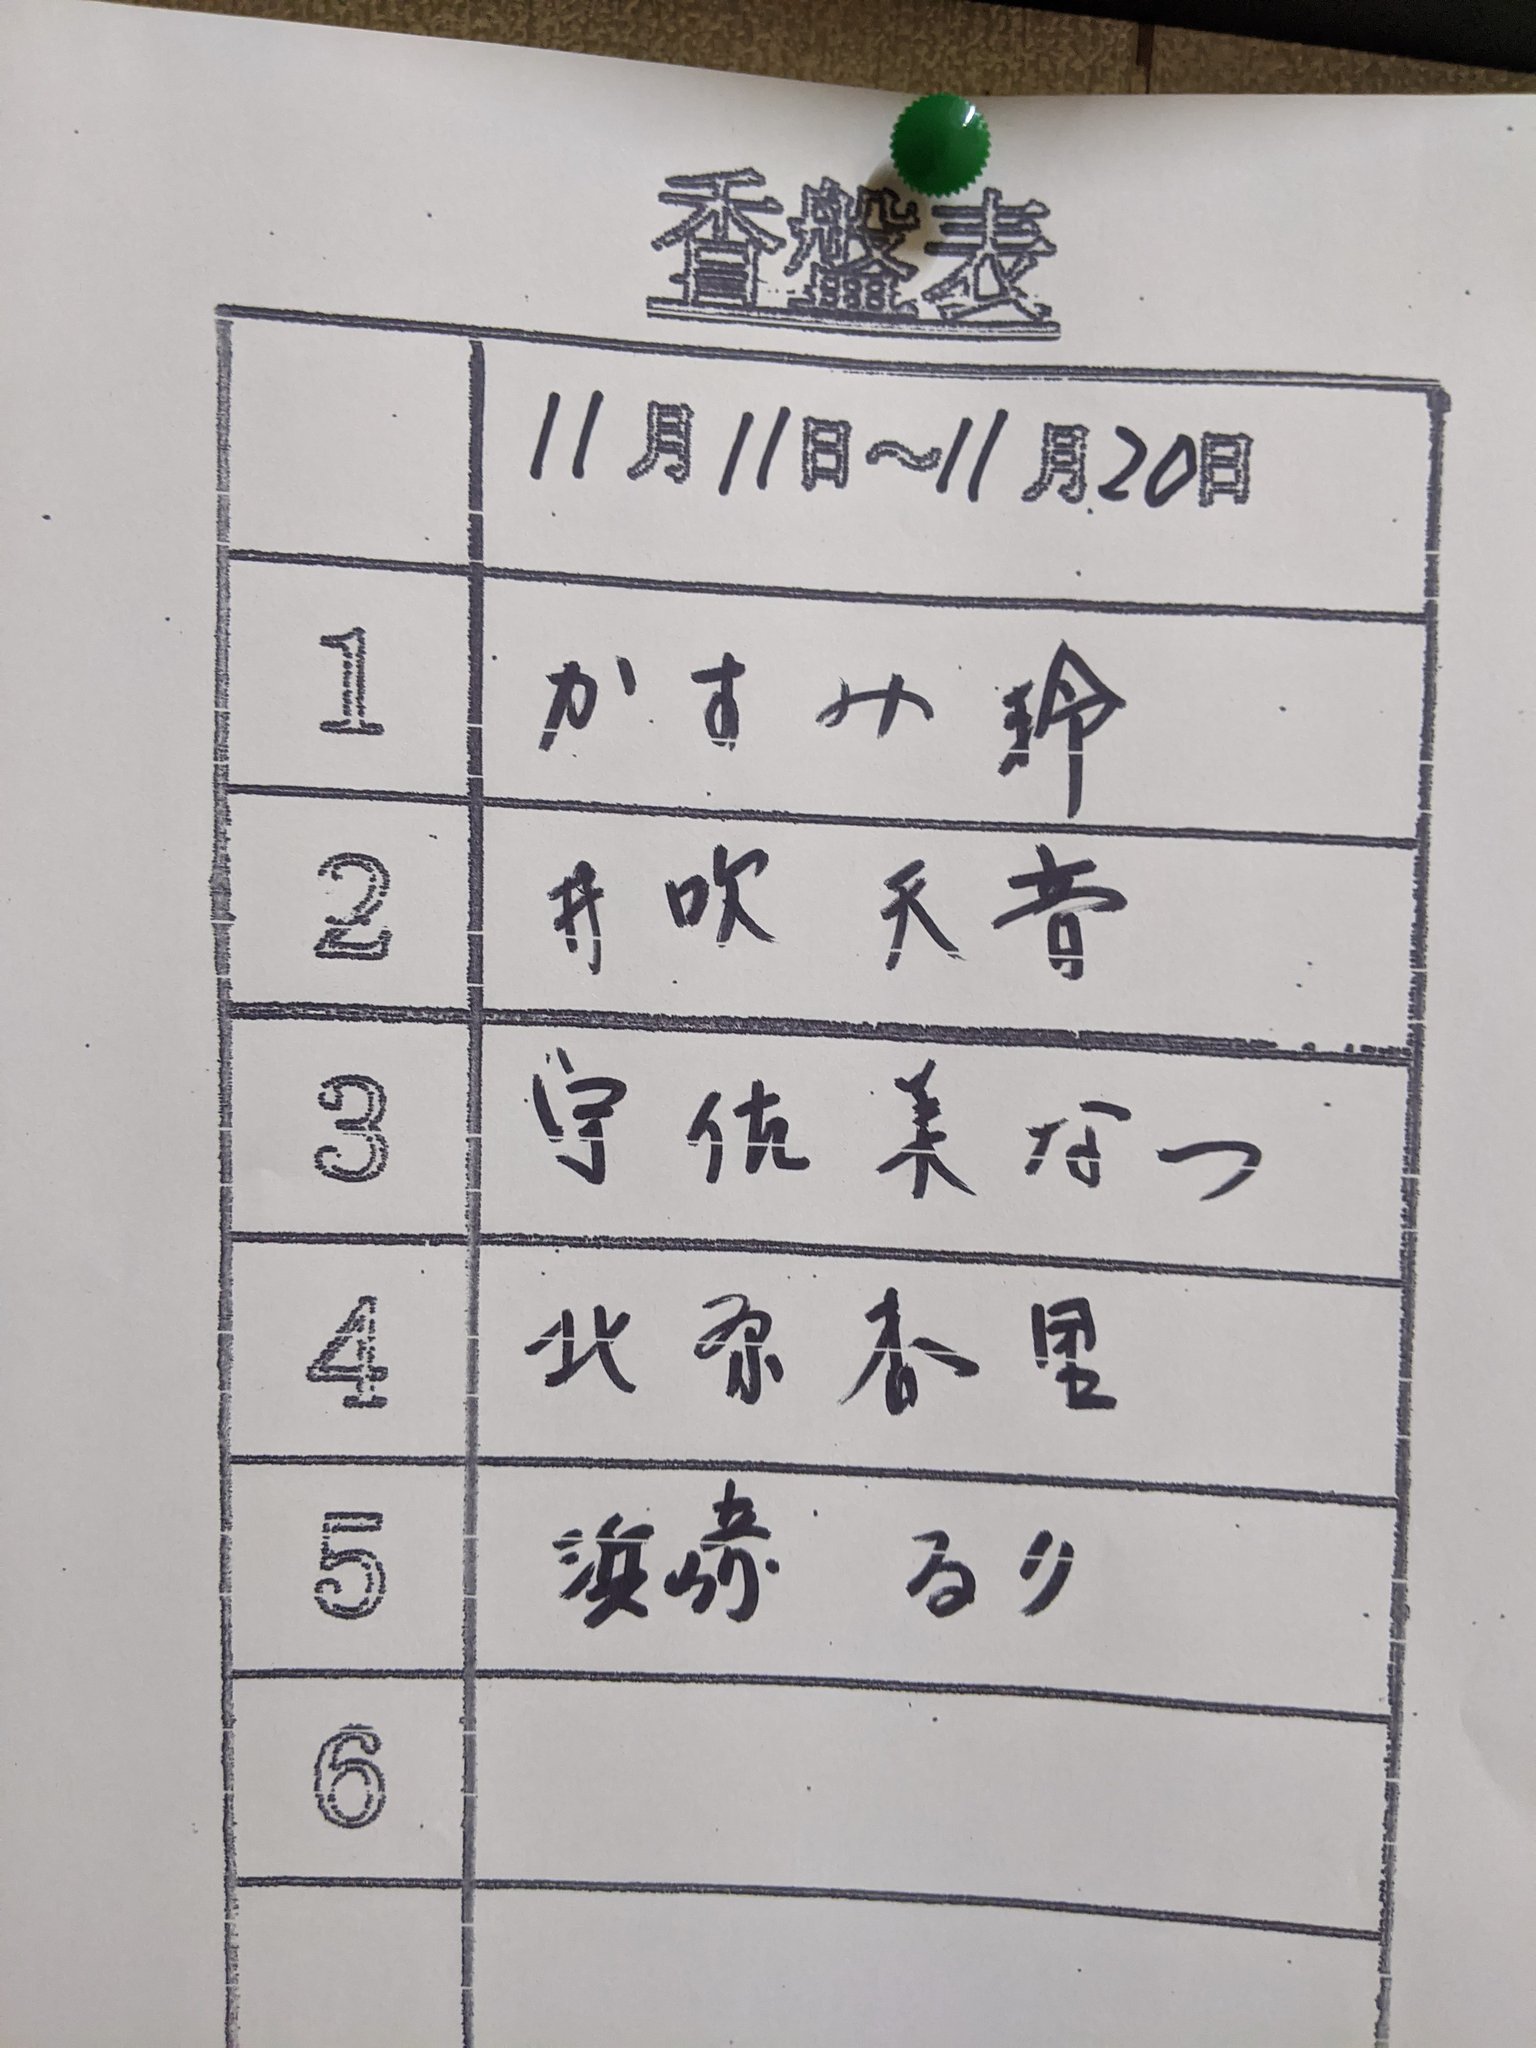 香盤表
11月11日～11月20日
1 かすみ玲
2 井吹天音
3 宇佐美なつ
4 北原杏里
5 浜崎るり
6